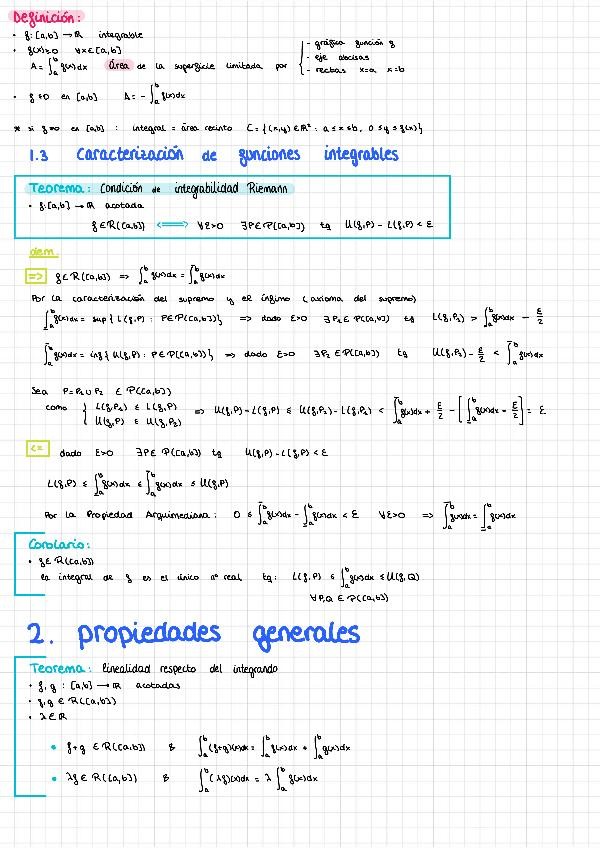 Definición:
• f: [a,b] → ℝ integrable
• f(x) ≥ 0 ∀x ∈ [a,b]
A = ∫_a^b f(x)dx Área de la superficie limitada por { - gráfica función f
- eje abcisas
- rectas x=a x=b
• f ≤ 0 en [a,b] A = - ∫_a^b f(x)dx
* si f ≥ 0 en [a,b] : integral = área recinto C = {(x,y) ∈ ℝ² : a ≤ x ≤ b, 0 ≤ y ≤ f(x)}
1.3 Caracterización de funciones integrables
Teorema: Condición de integrabilidad Riemann
• f: [a,b] → ℝ acotada
f ∈ R([a,b]) ⟺ ∀ε>0 ∃P ∈ P([a,b]) tq U(f,P) - L(f,P) < ε
dem.
=> f ∈ R([a,b]) => ∫_a^b f(x)dx = ∫_a^b f(x)dx
Por la caracterización del supremo y el ínfimo (axioma del supremo)
∫_a^b f(x)dx = sup { L(f,P) : P ∈ P([a,b])} => dado ε>0 ∃P₁ ∈ P([a,b]) tq L(f,P₁) > ∫_a^b f(x)dx - ε/2
∫_a^b f(x)dx = inf { U(f,P) : P ∈ P([a,b])} => dado ε>0 ∃P₂ ∈ P([a,b]) tq U(f,P₂) - ε/2 < ∫_a^b f(x)dx
Sea P = P₁ ∪ P₂ ∈ P([a,b])
como { L(f,P₁) ≤ L(f,P)
U(f,P) ≤ U(f,P₂) => U(f,P) - L(f,P) ≤ U(f,P₂) - L(f,P₁) < ∫_a^b f(x)dx + ε/2 - [∫_a^b f(x)dx - ε/2] = ε
<= dado ε>0 ∃P ∈ P([a,b]) tq U(f,P) - L(f,P) < ε
L(f,P) ≤ ∫_a^b f(x)dx ≤ ∫_a^b f(x)dx ≤ U(f,P)
Por la Propiedad Arquimediana: 0 ≤ ∫_a^b f(x)dx - ∫_a^b f(x)dx < ε ∀ε>0 => ∫_a^b f(x)dx = ∫_a^b f(x)dx
Corolario:
• f ∈ R([a,b])
la integral de f es el único nº real tq: L(f,P) ≤ ∫_a^b f(x)dx ≤ U(f,Q)
∀P,Q ∈ P([a,b])
2. propiedades generales
Teorema: linealidad respecto del integrando
• f, g : [a,b] → ℝ acotadas
• f, g ∈ R([a,b])
• λ ∈ ℝ
• f+g ∈ R([a,b]) & ∫_a^b (f+g)(x)dx = ∫_a^b f(x)dx + ∫_a^b g(x)dx
• λf ∈ R([a,b]) & ∫_a^b (λf)(x)dx = λ ∫_a^b f(x)dx